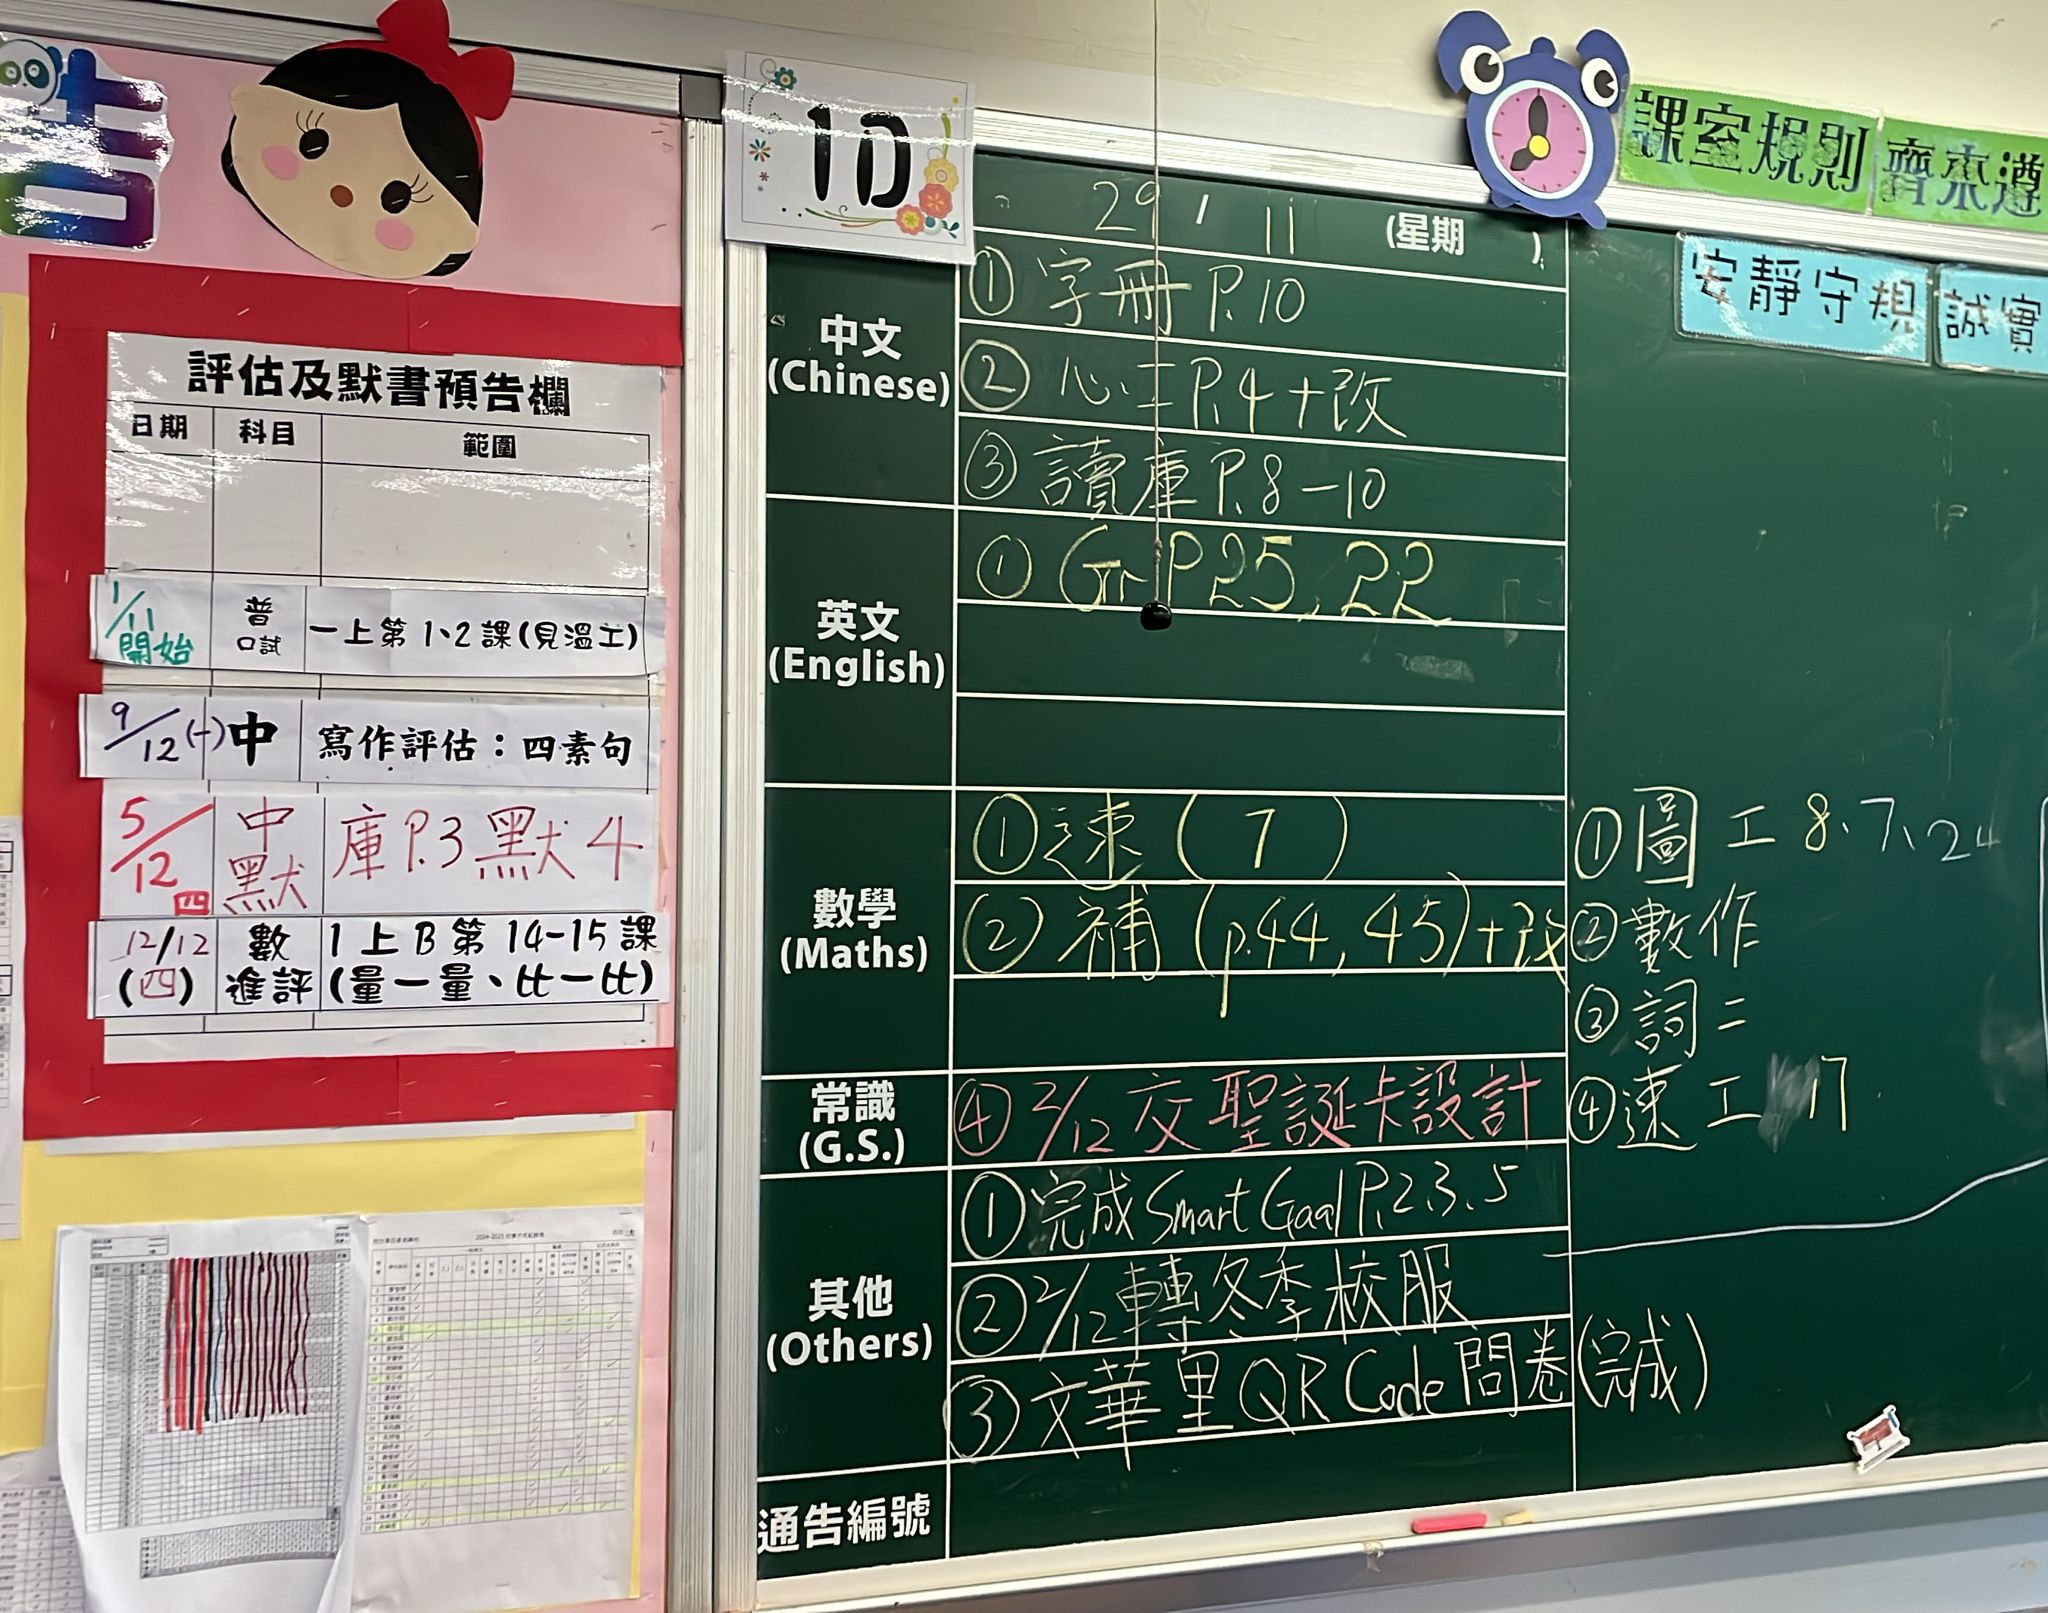 告
評估及默書預告欄
日期 科目 範圍
1/11 開始 普 口試 一上第1、2課(見溫工)
9/12(一) 中 寫作評估：四素句
5/12 四 中默 庫P.3 默4
12/12 (四) 數 進評 1上B第14-15課 (量一量、比一比)
1D
課室規則 齊來遵
安靜守規 誠實
29 / 11 (星期 )
中文 (Chinese)
① 字冊 P.10
② 心工 P.4+改
③ 讀庫 P.8-10
英文 (English)
① Gr P.25, 22
數學 (Maths)
① 速 ( 7 )
② 補 (p.44, 45)+改
常識 (G.S.)
④ 2/12 交聖誕卡設計
其他 (Others)
① 完成 Smart Goal P.2、3、5
② 2/12 轉冬季校服
③ 文華里 QR Code 問卷 (完成)
通告編號
① 圖工 8、7、24
② 數作
③ 詞二
④ 速工 17